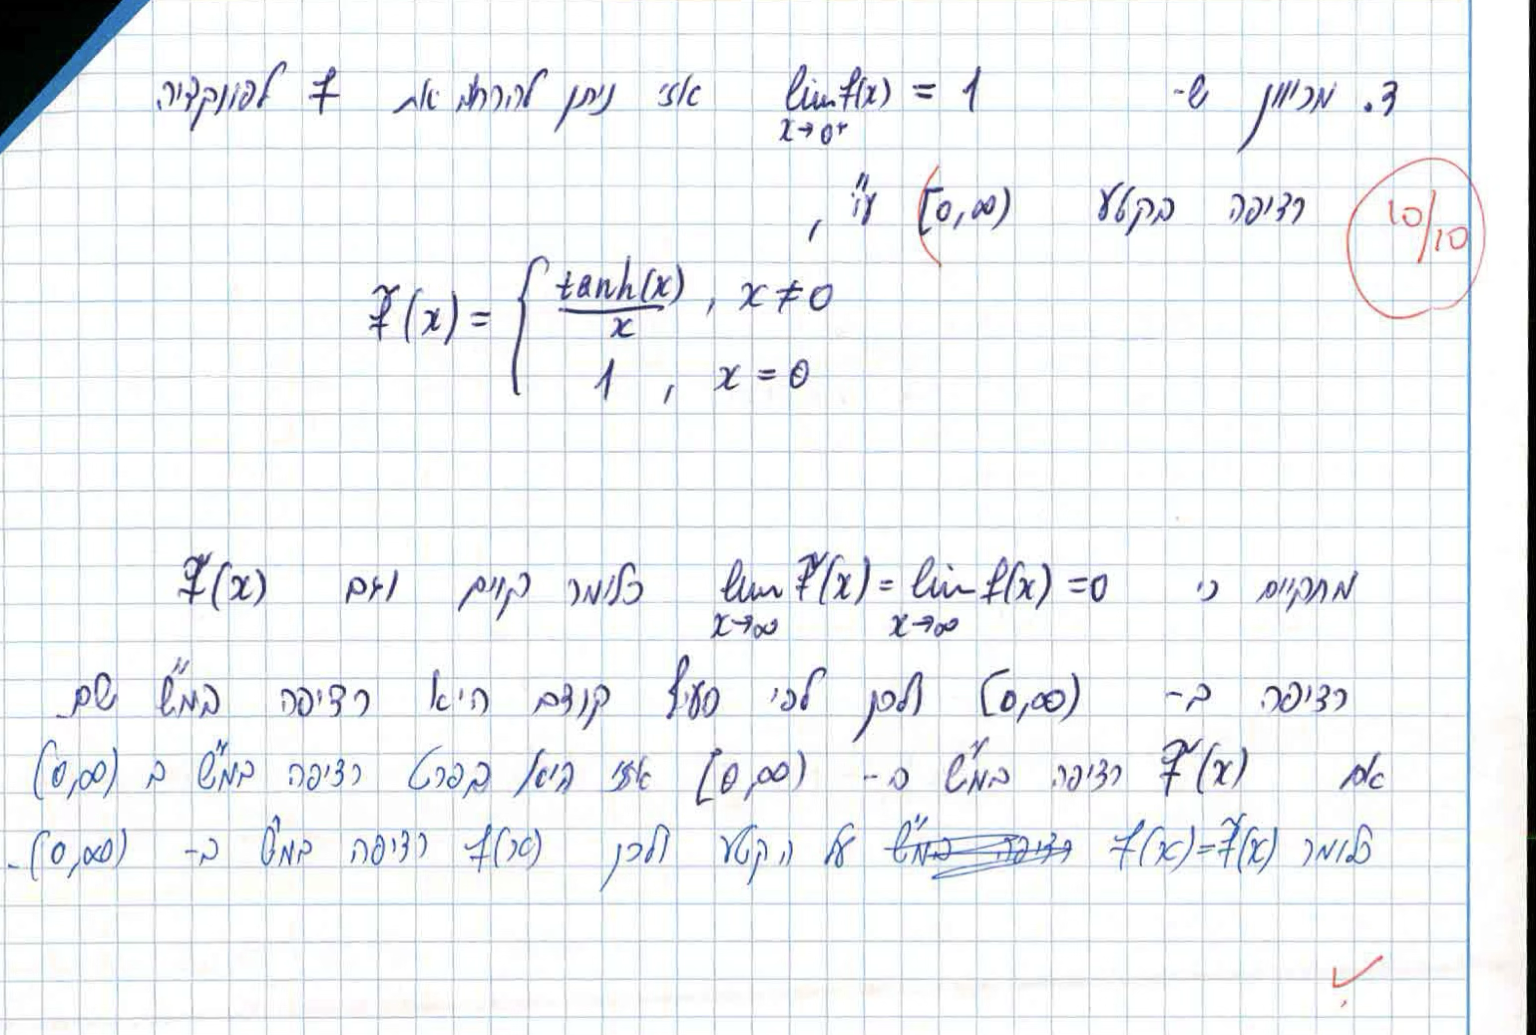 ד. מכיוון ש- lim f(x) = 1 אזי ניתן להרחיב את f לפונקציה
x→0⁺
רציפה בקטע [0,∞) ע"י ,
10/10
f̃(x) = { tanh(x)/x , x≠0
1 , x=0
מתקיים כי lim f̃(x) = lim f(x) = 0 כלומר קיים וגם f̃(x)
x→∞ x→∞
רציפה ב- [0,∞) ולכן לפי סעיף קודם היא רציפה במ"ש שם.
אם f̃(x) רציפה במ"ש ב- [0,∞) אזי היא בפרט רציפה במ"ש ב (0,∞)
כלומר f(x)=f̃(x) על הקטע ולכן f(x) רציפה במ"ש ב- (0,∞).